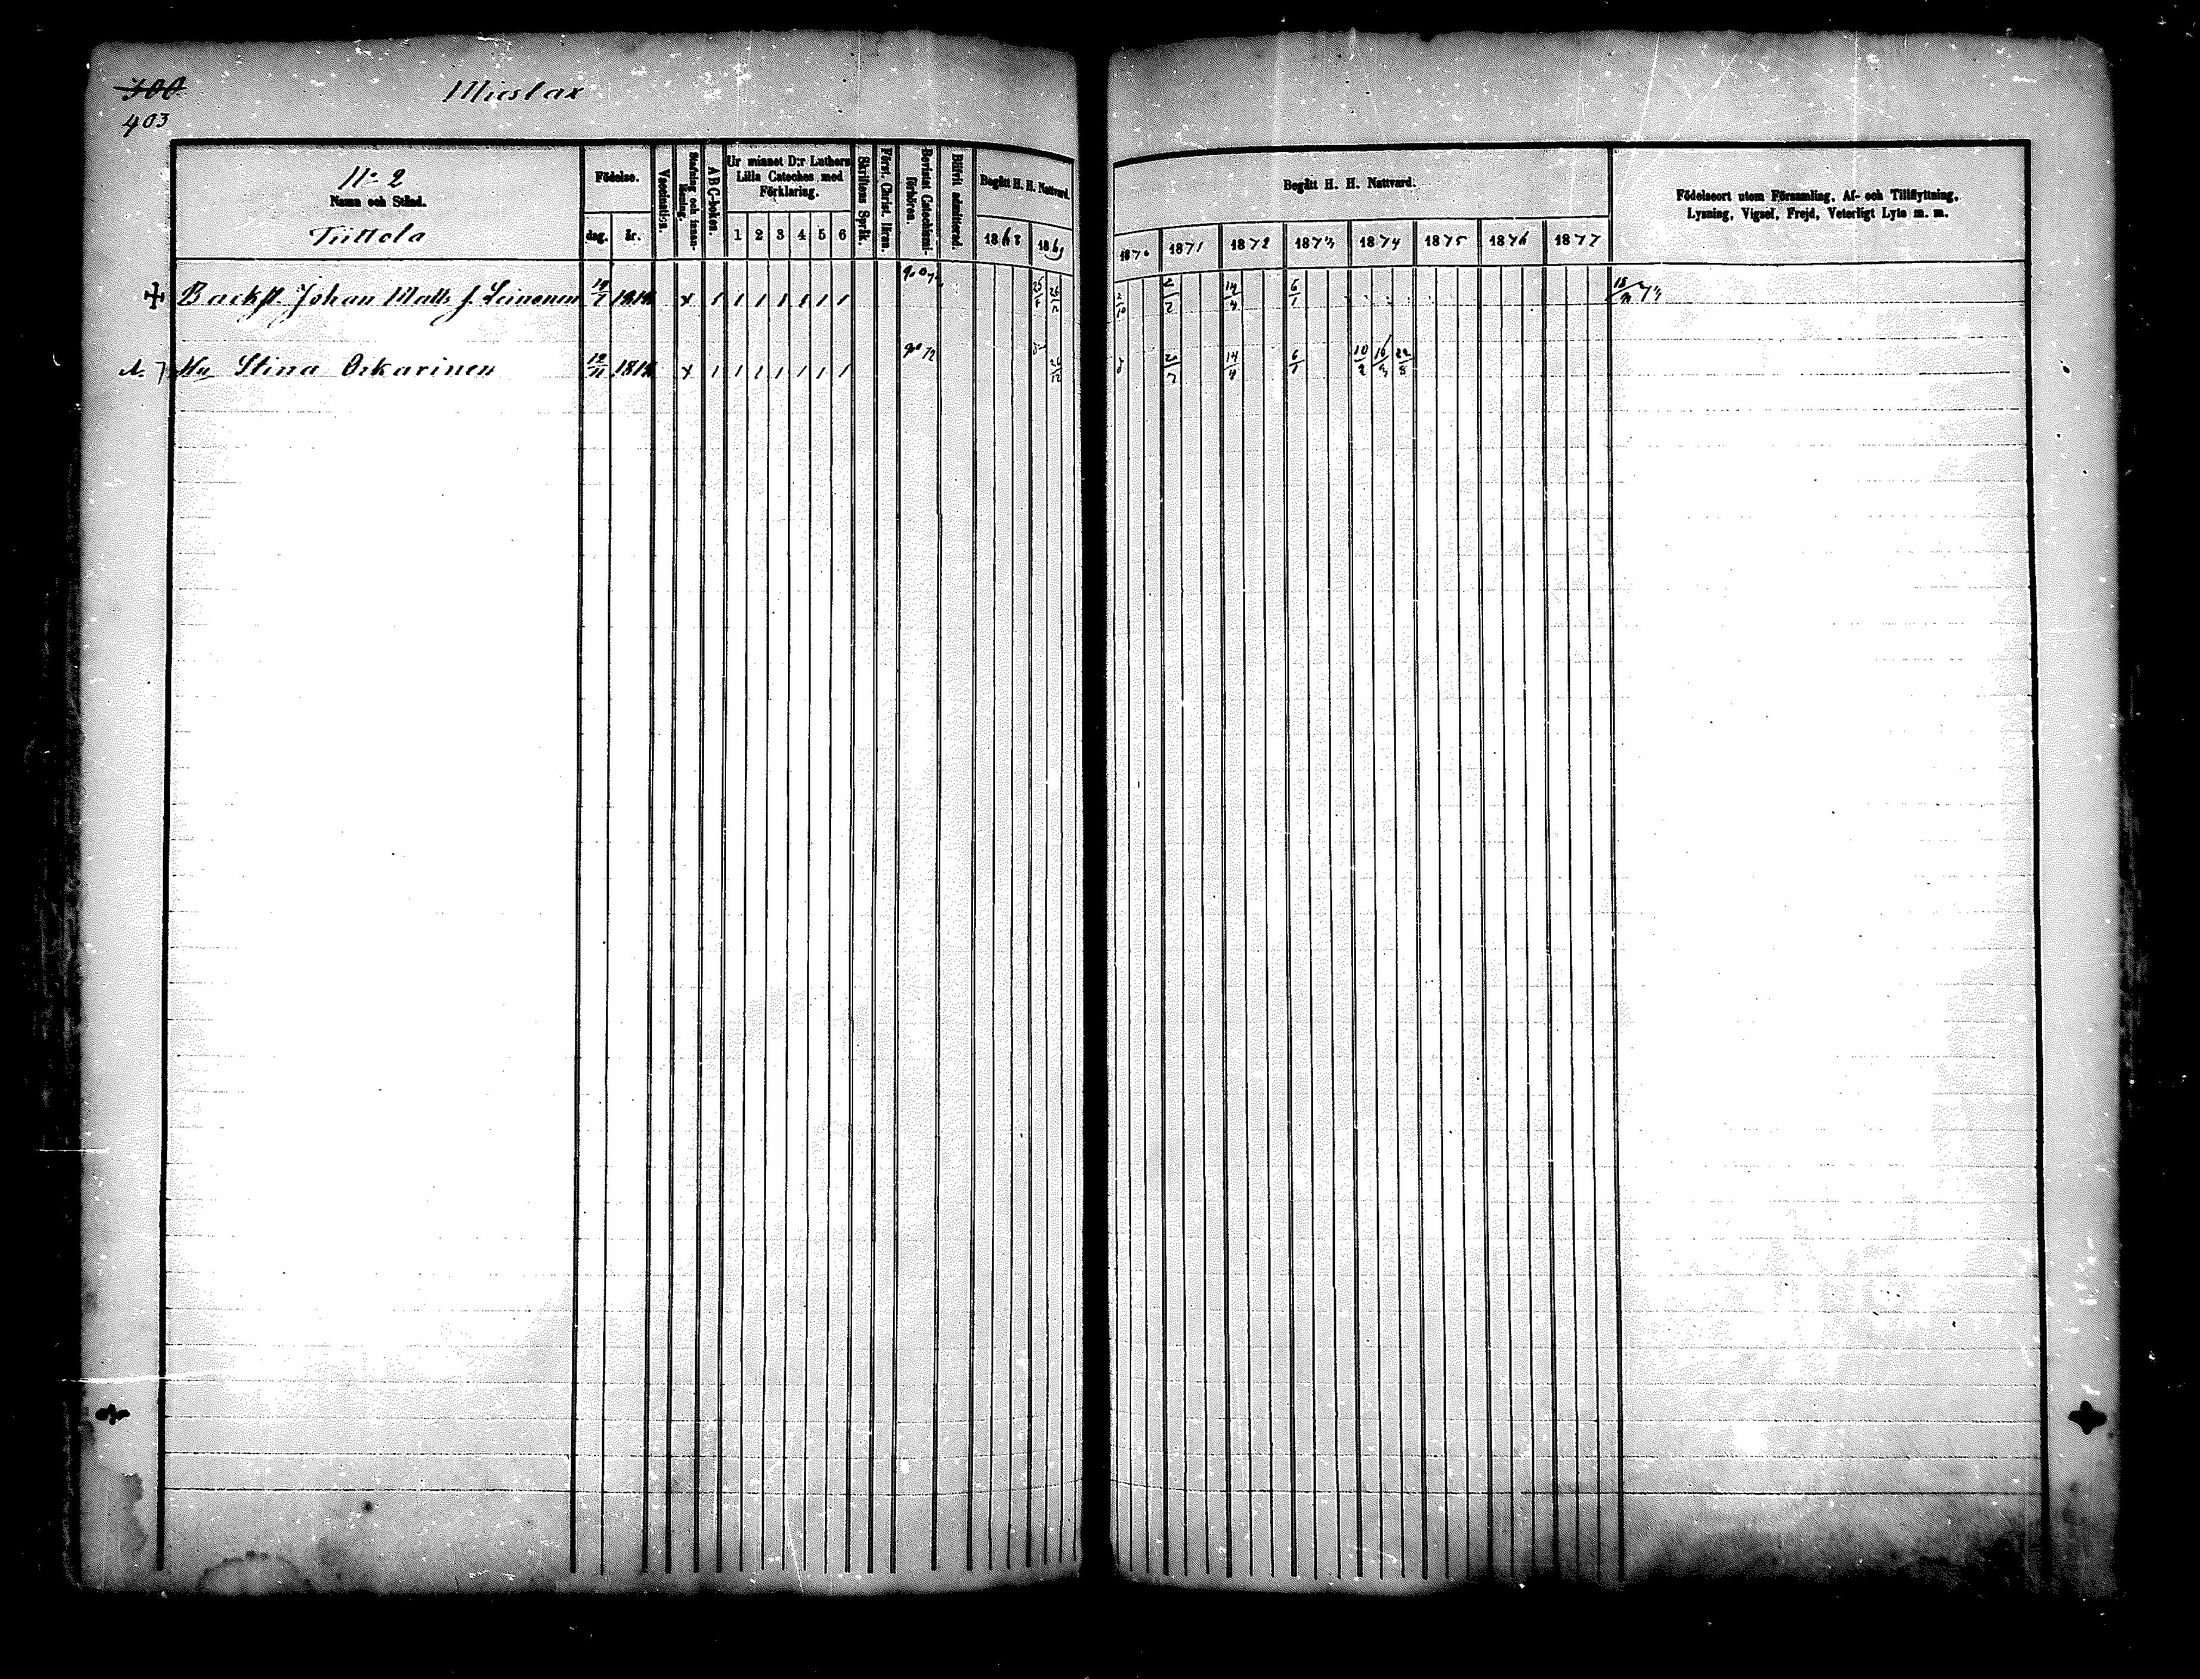 700
403
Mustax
N:o 2
Namn och Stånd.
Tiittola
Födelse.
dag. år.
Vaccination.
Stafning och innan-läsning.
A B C-boken.
Ur minnet D:r Luthers Lilla Cateches med Förklaring.
1 2 3 4 5 6
Skriftens Språk.
Först. Christ. läran.
Bevistat Catechismi-förhören.
Blifvit admitterad.
Begått H. H. Nattvard.
1868 1869
Begått H. H. Nattvard.
1870 1871 1872 1873 1874 1875 1876 1877
Födelseort utom Församling, Af- och Tillflyttning,
Lysning, Vigsel, Frejd, Veterligt Lyte m. m.
Backst. Johan Matts s. Leinonen x 1 1 1 1 1 1 1 2/10 2/2 14/4 6/1
Hu Stina Oskarinen 12/11 x 1 1 1 1 1 1 1 14/4 6/1 10/2